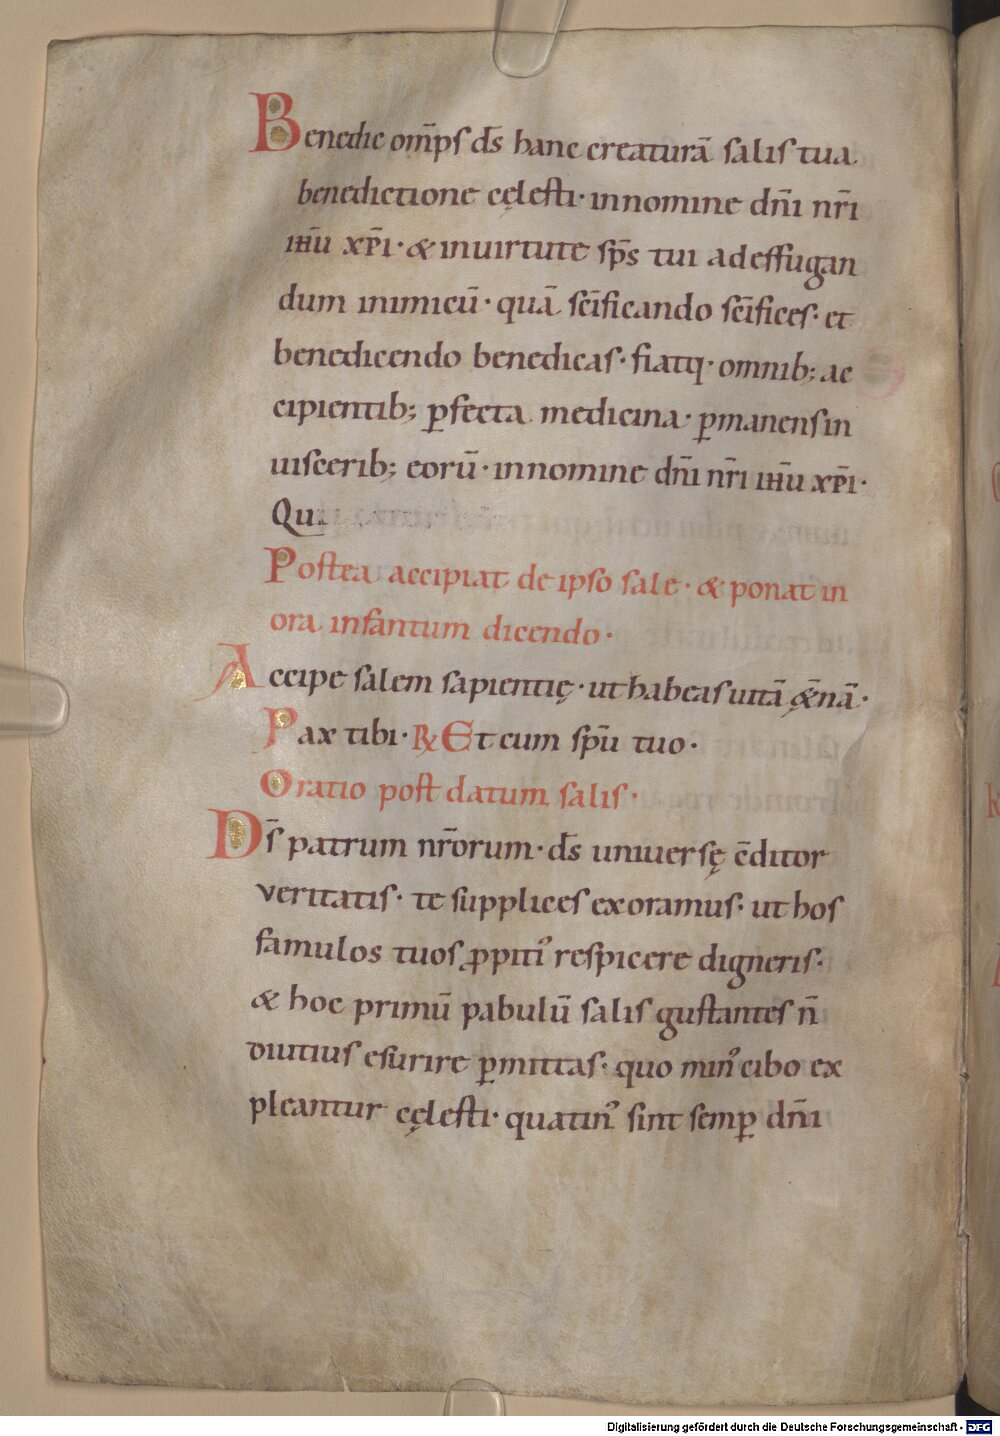 Benedic om̅ps ds̅ hanc creaturā salis tua
benedictione cęlesti· in nomine dn̅i nr̅i
ihu̅ xp̅i· & in uirtute sp̅s tui ad effugan
dum inimicū· quā sc̅ificando sc̅ifices· et
benedicendo benedicas· fiatq· omnib; ac
cipientib; ꝑfecta medicina· ꝑmanens in
uiscerib; eorū· in nomine dn̅i nr̅i ihu̅ xp̅i·
Qui
Postea accipiat de ipso sale· & ponat in
ora infantum dicendo·
Accipe salem sapientię· ut habeas uitā &̨̅nā·
Pax tibi· ℟ Et cum sp̅u tuo·
Oratio post datum salis·
Ds̅ patrum nr̅orum· ds̅ uniuersę c̅ditor
veritatis· te supplices exoramus· ut hos
famulos tuos ꝓpitiꝰ respicere digneris·
& hoc primū pabulū salis gustantes n̅
diutius esurire ꝑmittas· quo minꝰ cibo ex
pleantur cęlesti· quatinꝰ sint semꝑ dn̅i
Digitalisierung gefördert durch die Deutsche Forschungsgemeinschaft - DFG